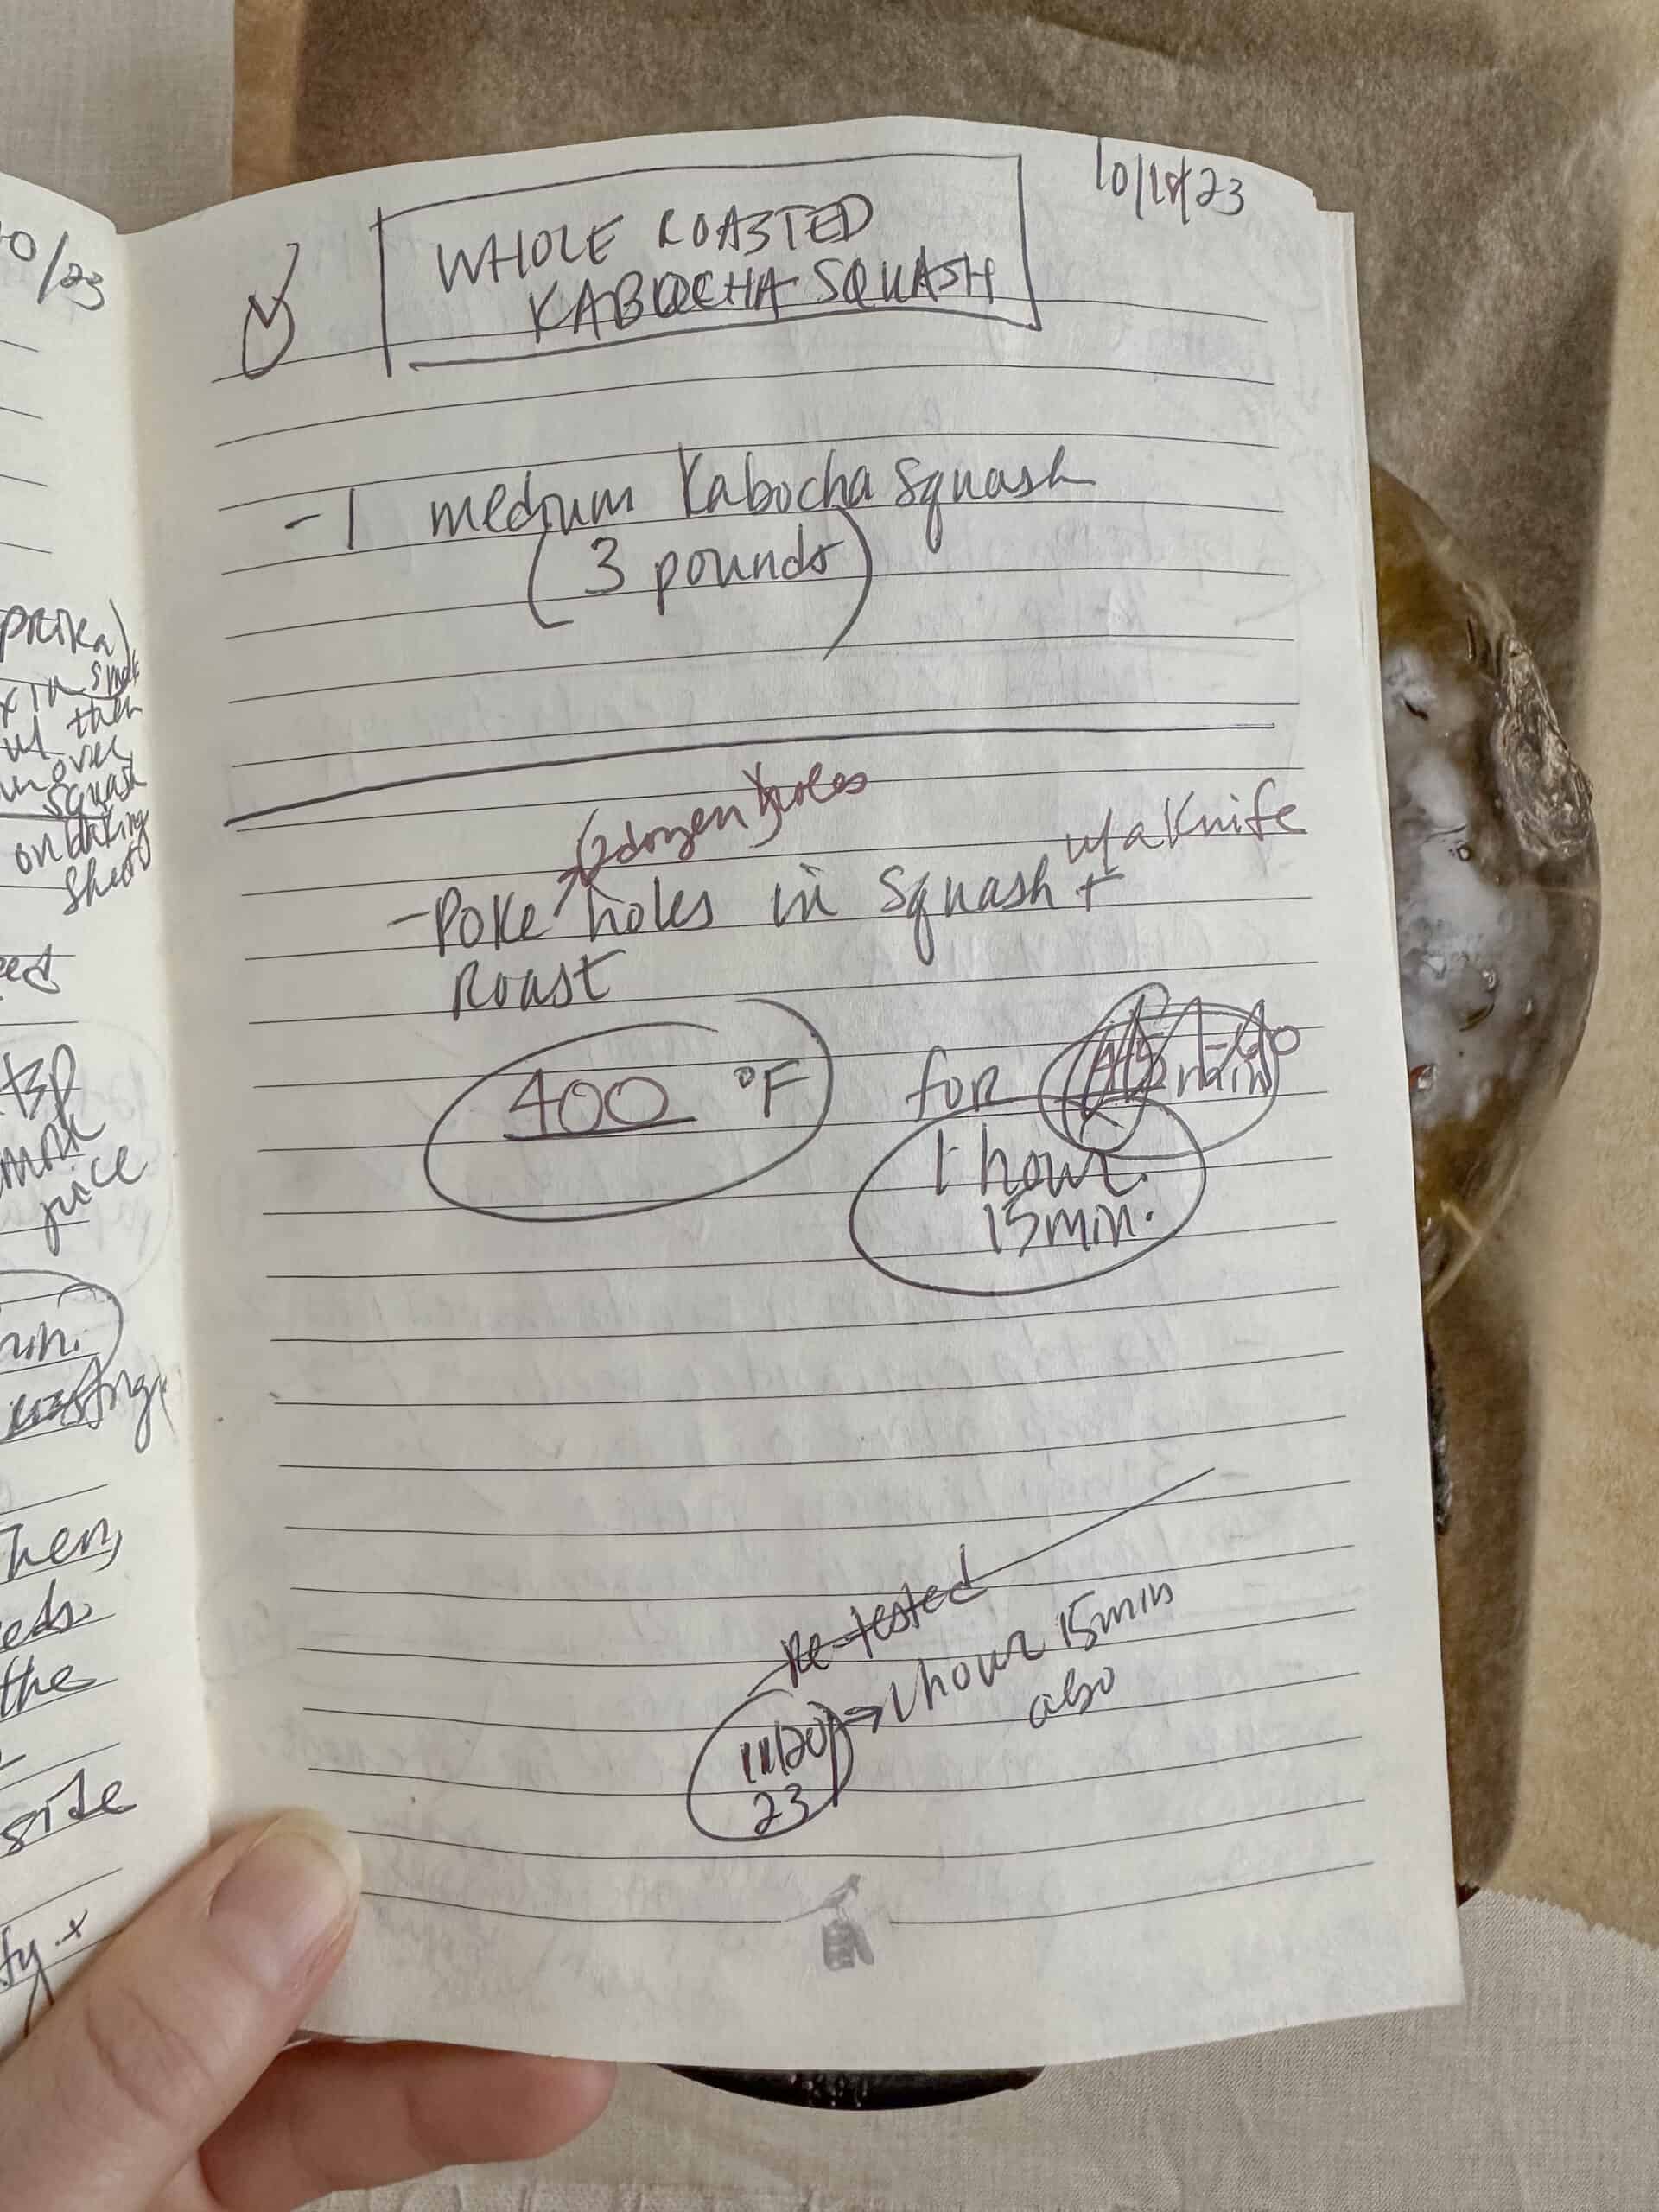 0/23
prika)
x in small
then
over
squash
on baking
sheet
tsp
juice
min.
Then,
eds.
the
side
10/18/23
WHOLE ROASTED
KABOCHA SQUASH
-1 medium Kabocha Squash
(3 pounds)
(2 dozen) holes
w/a Knife
-Poke holes in Squash +
Roast
400 °F for
1 hour.
15min.
Re-tested
11/20
23 → 1 hour 15min
also